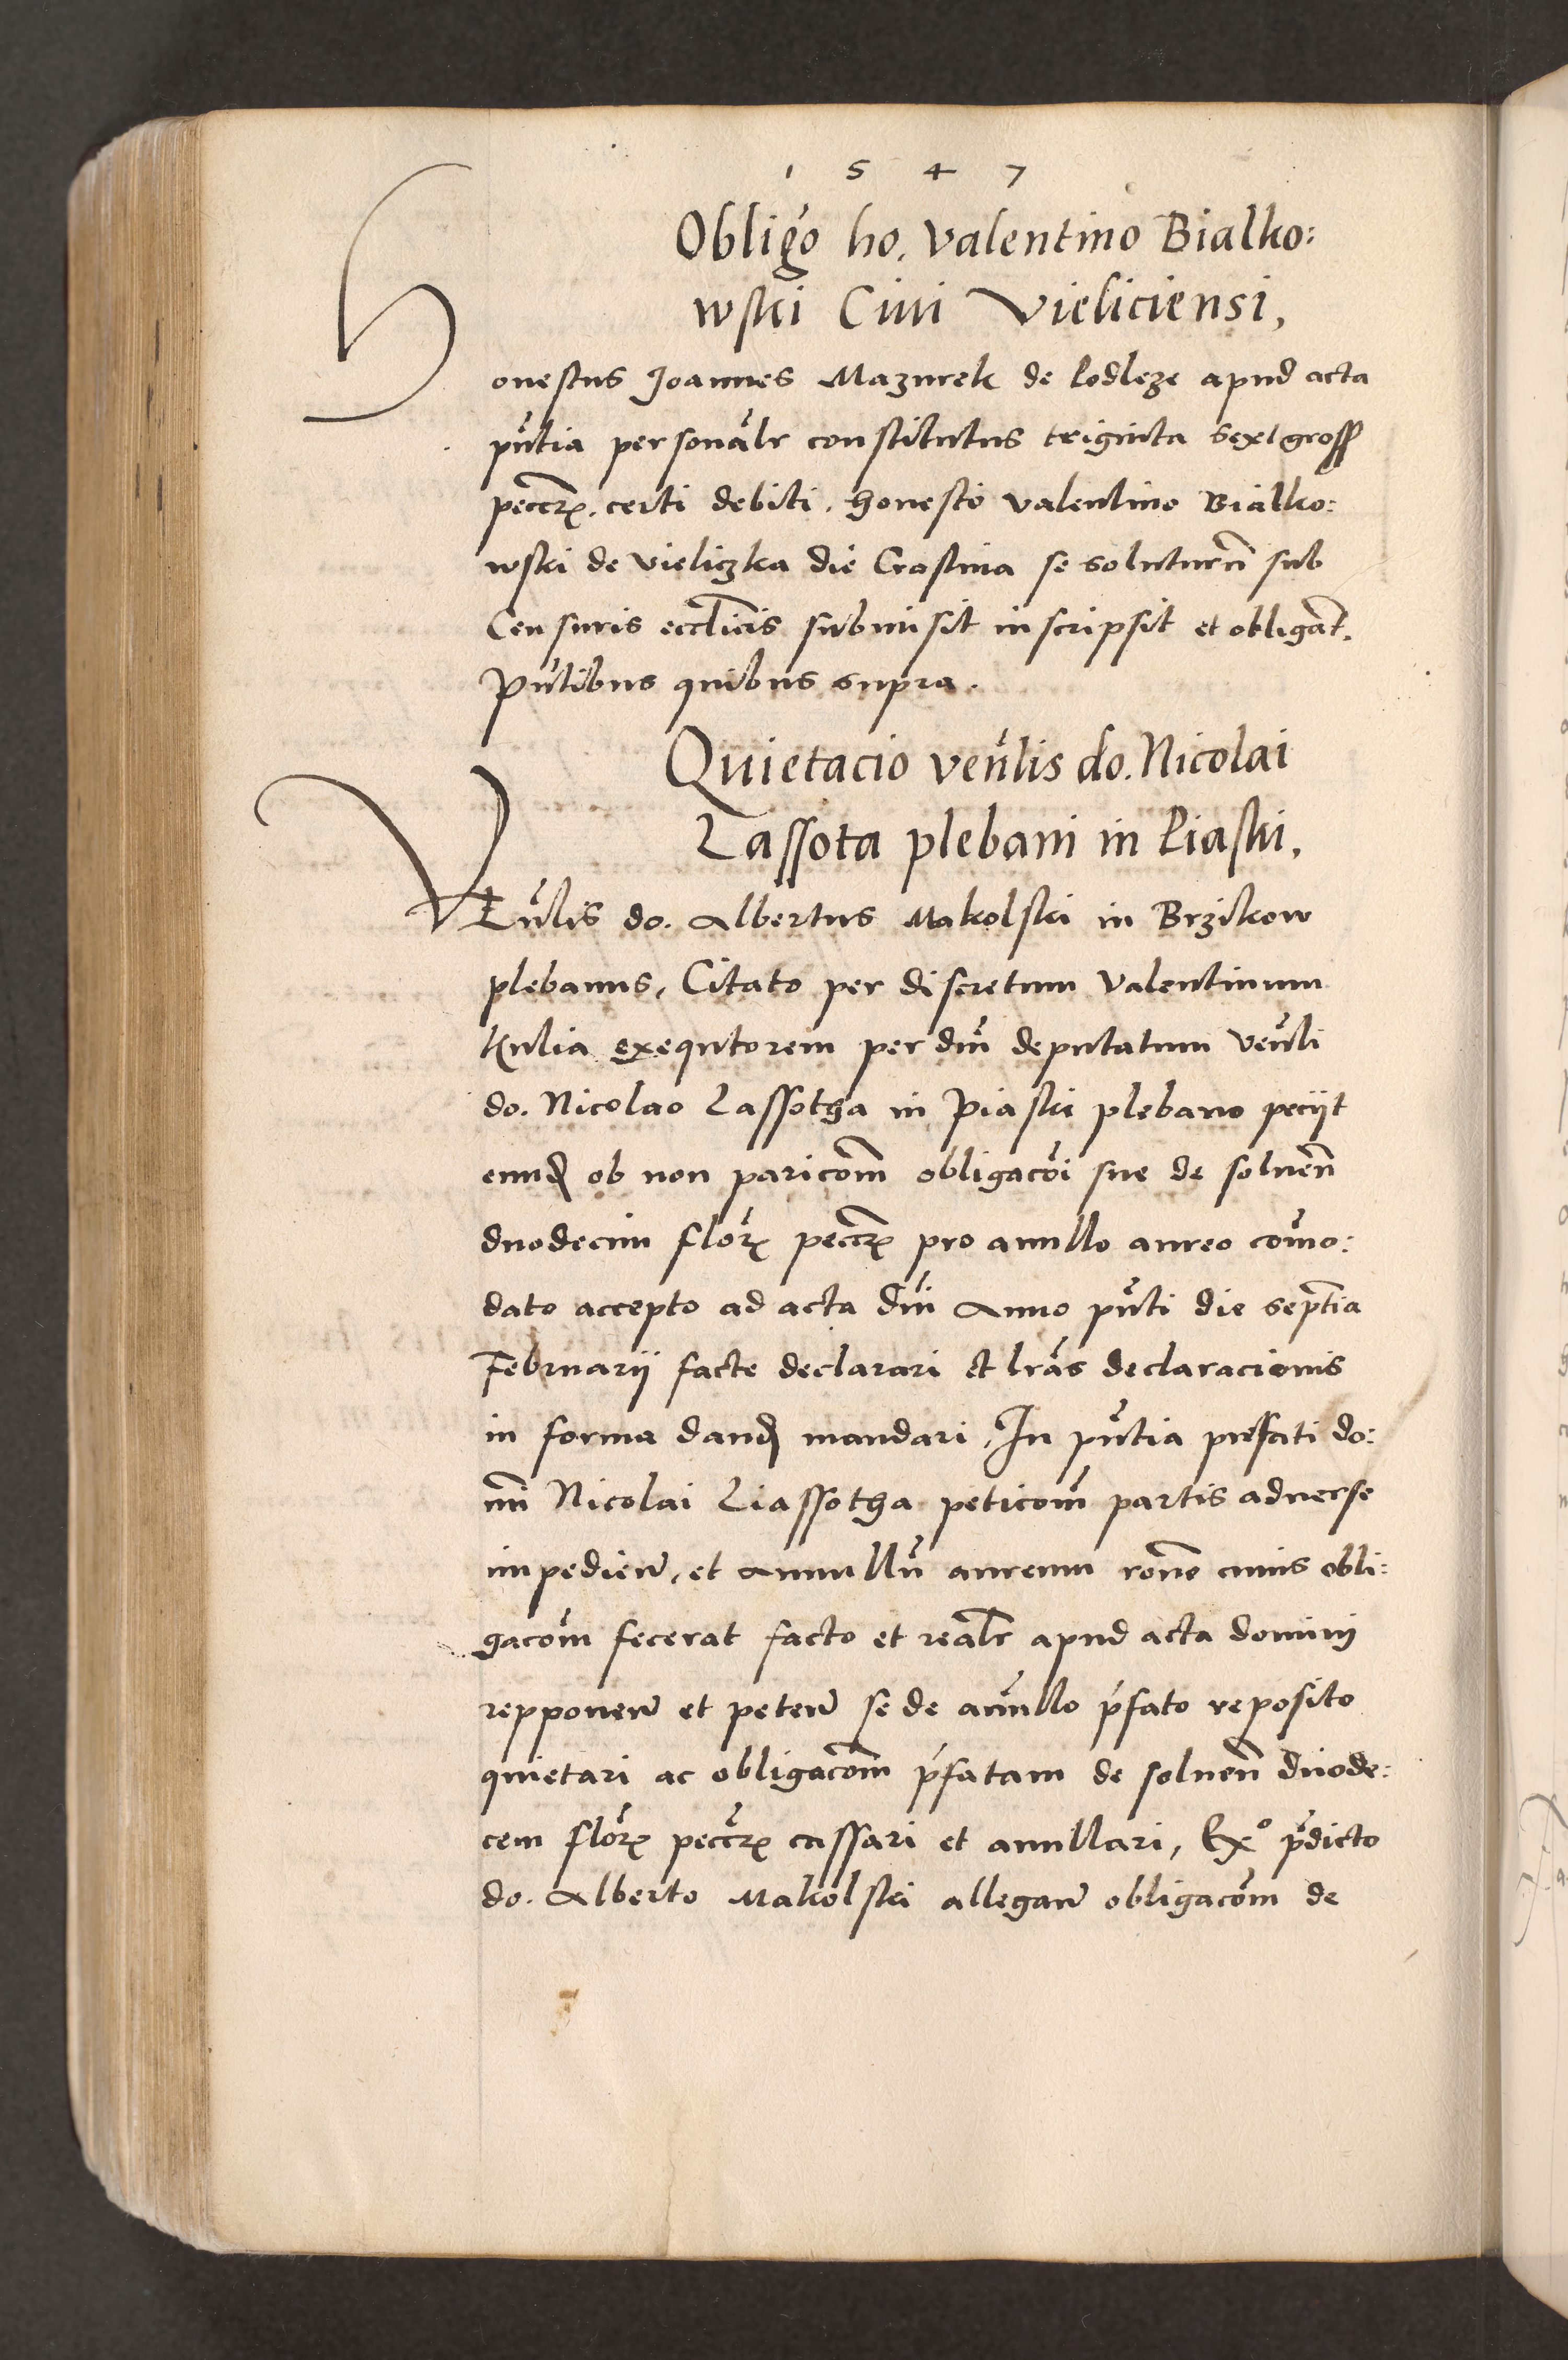 1 5 4 7
Obligo ho. Valentino Bialko:
wski Ciui Vieliciensi,
Honestus Joannes Mazurek de Podleze apud acta
pn̄tia personalr constitutus triginta sex grosẜ
pecc̄rꝫ. certi debiti. honesto Valentino Bialko:
wski de Vieliczka die Crastina se soluturū sub
Censuris ecclīcis submisit inscripsit et obligaṫ.
Pn̄tibus quibus supra.
Quietacio ven̄lis do. Nicolai
Lassota plebani in Piaski,
VEn̄lis do. Albertus Makolski in Brzikow
plebanus, Citato per discretum Valentinum
Kulia exequtorem per dn̄ deputatum Ven̄li
do. Nicolao Lassotha in Piaski plebano peciit
eundꝫ ob non paricōm obligacōi sue de soluen̄
duodecim flōrꝫ pecc̄rꝫ pro annullo aureo cōmo:
dato accepto ad acta dn̄i Anno pn̄ti die septīa
Februarij facte declarari et lrās declaracionis
in forma dandꝫ mandari, In pn̄tia prefati do:
mi Nicolai Liassotha peticōm partis aduerse
impedien̄, et annullū aureum rōne cuius obli:
gacōm fecerat facto et realr apud acta dominj
repponen̄ et peten̄ se de annullo p̄fato reposito
quietari ac obligacōm p̄fatam de soluen̄ duode:
cem flōrꝫ pecc̄rꝫ cassari et annullari, Exº p̄dicto
do. Alberto Makolski allegan̄ obligacōm de